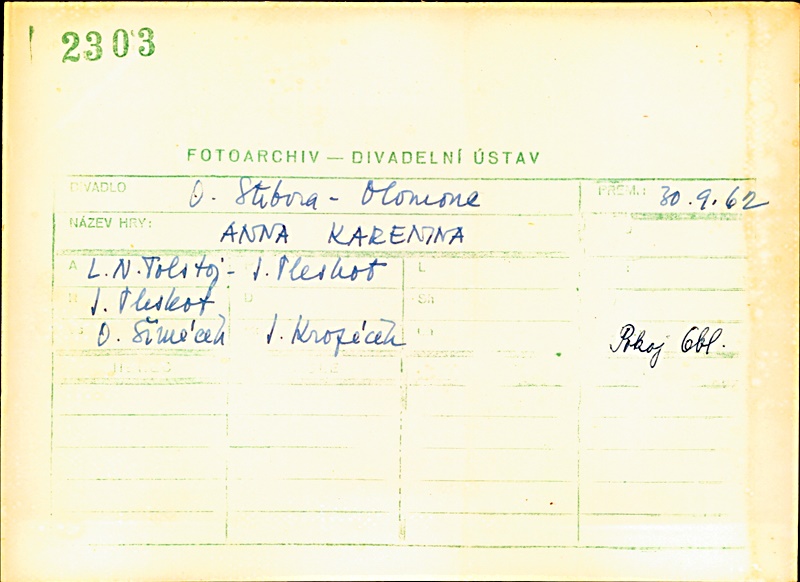 2303
FOTOARCHIV — DIVADELNÍ ÚSTAV
DIVADLO O. Stibora - Olomouc PREM.: 30.9.62
NÁZEV HRY: ANNA KARENINA
A L.N.Tolstoj - J. Pleskot
J. Pleskot
O. Šimáček J. Kropáček
Pokoj Obl.